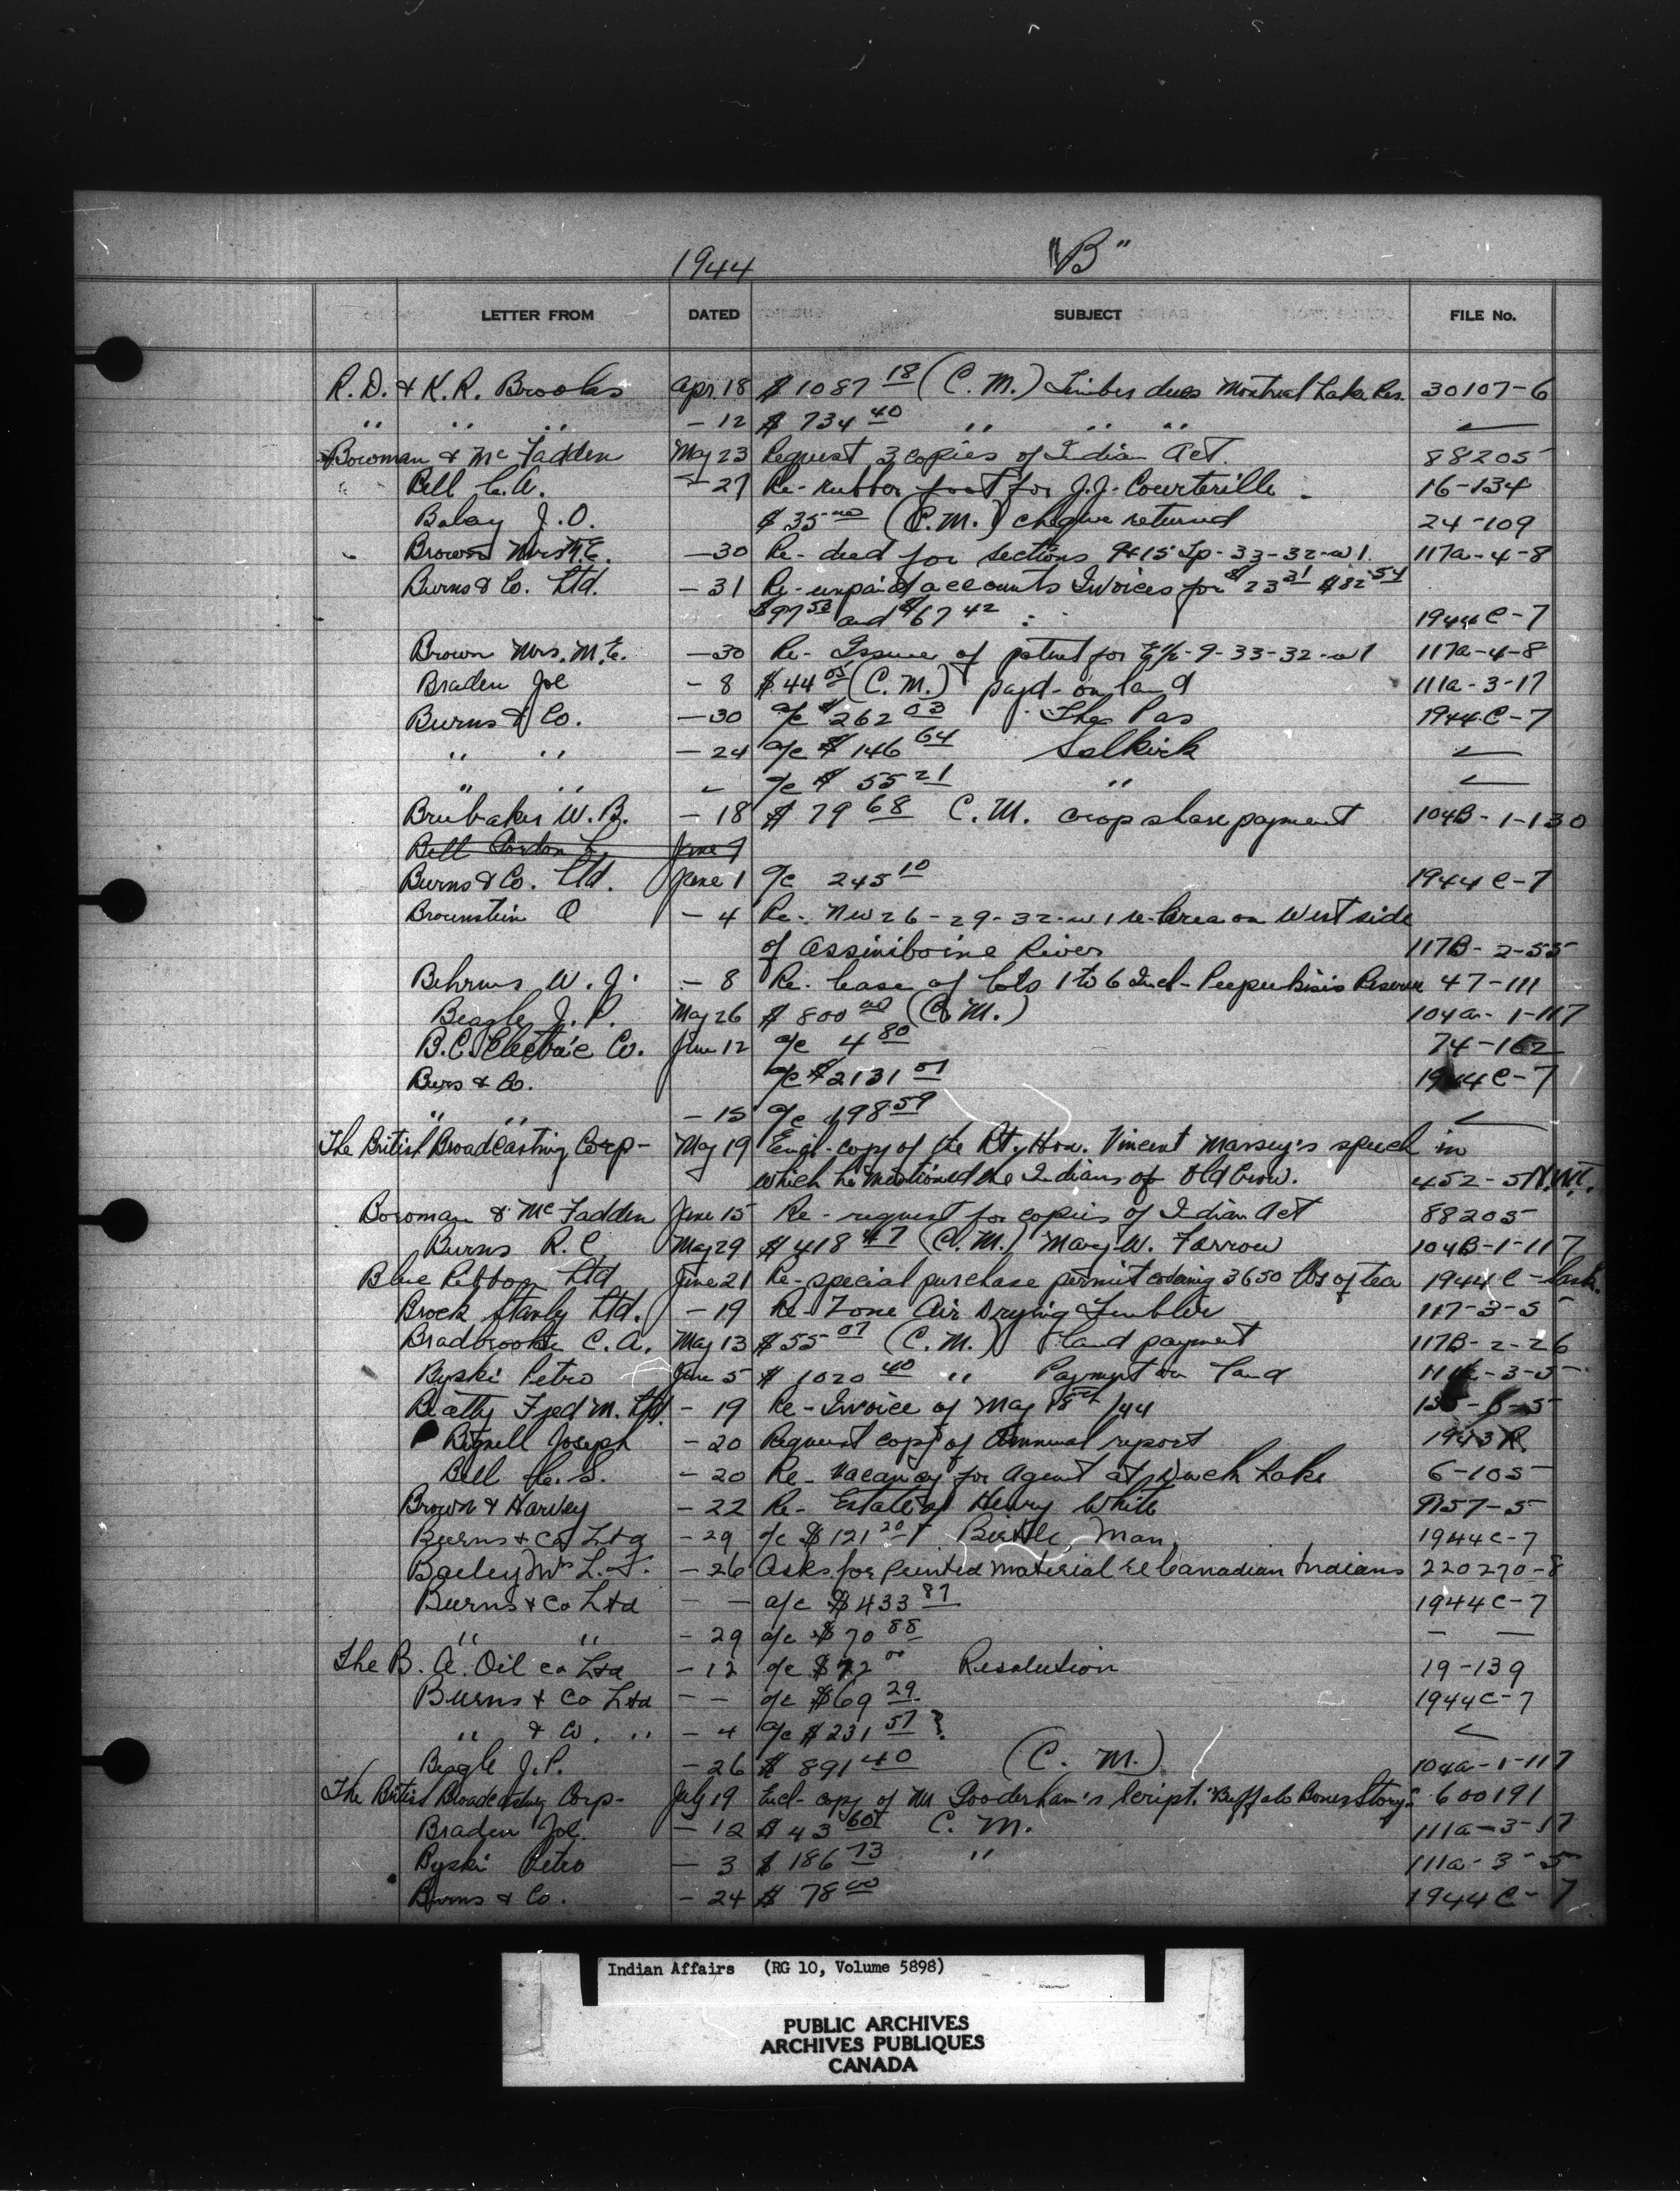 1944 "B"
LETTER FROM DATED SUBJECT FILE No.
R. D. & K. R. Brooks Apr. 18 $ 1087 18 (C. M.) Timber dues Montreal Lake Res. 30107-6
" " " - 12 $ 734 40 " " "
Bowman & McFadden May 23 Request 3 copies of Indian Act. 88205
Bell C. A. - 27 Re- rubber foot for J. J. Courterille 16-134
Balay J. O. $ 35 00 (C. M.) cheque returned 24-109
Brown Mrs M. E. - 30 Re- deed for sections 9 & 15 Tp- 33-32-w1 117a-4-8
Burns & Co. Ltd. - 31 Re- unpaid accounts Invoices for $ 23 31 $82 54
$97 53 and $67 42 1944 C-7
Brown Mrs. M. E. - 30 Re- Issue of patent for E½-9-33-32-w1 117a-4-8
Braden Joe - 8 $ 44 05 (C. M.) payt- on land 111a-3-17
Burns & Co. - 30 a/c $ 262 03 The Pas 1944 C-7
" " - 24 a/c $ 146 64 Selkirk
" " a/c $ 55 21 "
Brubaker W. B. - 18 $ 79 68 C. M. crop share payment 104B-1-130
Bell Gordon L. June 7
Burns & Co. Ltd. June 1 a/c 245 10 1944 C-7
Brownstein O - 4 Re- NW 26-29-32-w1 re- area on West side
of Assiniboine River 117B-2-55
Behrns W. J. - 8 Re- lease of lots 1 to 6 Incl- Peepeekisis Reserve 47-111
Beagle J. P. May 26 $ 800 00 (C. M.) 104a-1-117
B. C. Electric Co. June 12 a/c 4 80 74-162
Burs & Co. a/c $ 2131 07 1944 C-7
" " - 15 a/c 198 59
The British Broadcasting Corp- May 19 Encl- copy of the Rt. Hon. Vincent Massey's speech in
which he mentioned the Indians of Old Crow. 452-5 N.W.T.
Bowman & McFadden June 15 Re- request for copies of Indian Act 88205
Burns R. C. May 29 $ 418 47 (C. M.) Mary W. Farrow 104B-1-117
Blue Ribbon Ltd June 21 Re- special purchase permit covering 3650 lbs of tea 1944 C-Sask.
Brock Stanly Ltd. - 19 Re- Zone Air Drying Tumbler 117-3-5
Bradbrooke C. A. May 13 $ 55 07 (C. M.) land payment 117B-2-26
Byski Petro June 5 $ 1020 40 " Payment on land 111a-3-5
Beatty Fred M. Ltd. - 19 Re- Invoice of May 18th/44
Bignell Joseph - 20 Request copy of Annual report 1943 R.
Bell C. S. - 20 Re- Vacancy for Agent at Duck Lake 6-105
Brown & Harvey - 22 Re- Estate of Henry White 9157-5
Burns & Co Ltd - 29 a/c $ 121 20 Birtle, Man. 1944 C-7
Bailey Mrs L. J. - 26 Asks for printed material re Canadian Indians 220270-8
Burns & Co Ltd - - a/c $ 433 87 1944 C-7
" " - 29 a/c $ 70 88 - -
The B. A. Oil Co Ltd - 12 a/c $ 72 00 Resolution 19-139
Burns & Co Ltd - - a/c $ 69 29 1944 C-7
" & Co. " - 4 a/c $ 231 57 ?
Beagle J. P. - 26 $ 891 40 (C. M.) 104a-1-117
The British Broadcasting Corp- July 19 Encl- copy of Mr Gooderham's Script. "Buffalo Bones Story" 600191
Braden Joe. - 12 $ 43 60 C. M. 111a-3-17
Byski Petro - 3 $ 186 73 " 111a-3-5
Burns & Co. - 24 $ 78 00 1944 C-7
Indian Affairs (RG 10, Volume 5898)
PUBLIC ARCHIVES
ARCHIVES PUBLIQUES
CANADA